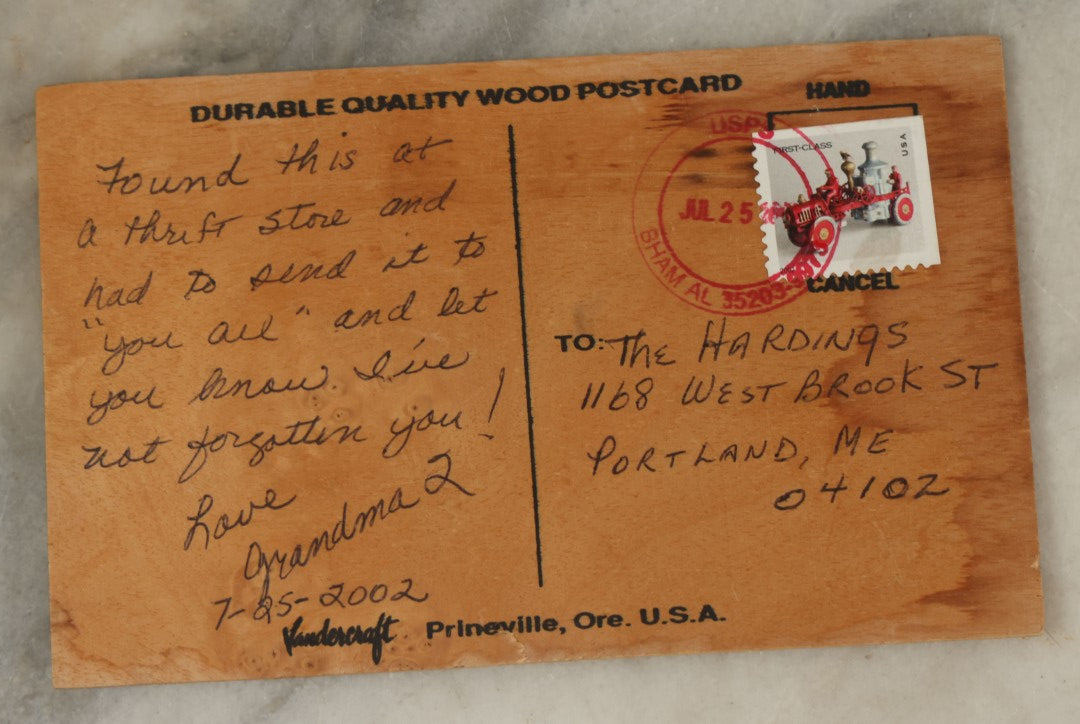 DURABLE QUALITY WOOD POSTCARD
Found this at
a thrift store and
had to send it to
"you all" and let
you know I've
not forgotten you!
Love
Grandma 2
7-25-2002
Vandercraft Prineville, Ore. U.S.A.
HAND
CANCEL
FIRST-CLASS
USA
USPS
JUL 25
BHAM AL 35203
TO: The HARDINGS
1168 WEST BROOK ST
PORTLAND, ME
04102